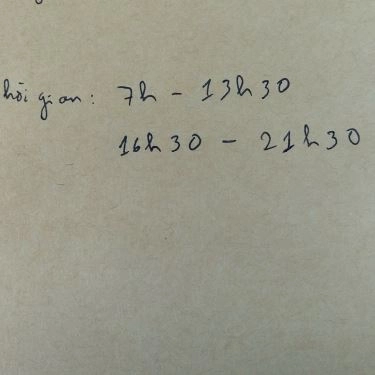 hời gian: 7h - 13h30
16h30 - 21h30